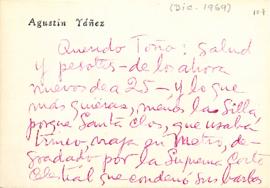 (Dic. 1969)
Agustín Yáñez
Querido Toño: Salud
y pesotes - de los ahora
nuevos de a 25 - y lo que
más quieras, menos la Silla
porque Santa Clos, que usaba
trineo, viaja en Metro, de-
gradado por la Suprema Corte
Celestial que condenó sus barbas